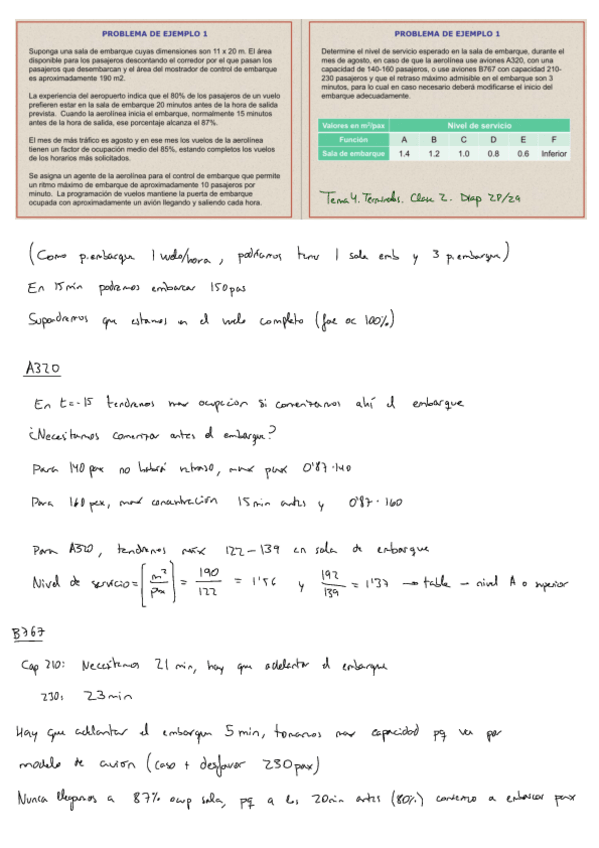 PROBLEMA DE EJEMPLO 1
Suponga una sala de embarque cuyas dimensiones son 11 x 20 m. El área
disponible para los pasajeros descontando el corredor por el que pasan los
pasajeros que desembarcan y el área del mostrador de control de embarque
es aproximadamente 190 m2.
La experiencia del aeropuerto indica que el 80% de los pasajeros de un vuelo
prefieren estar en la sala de embarque 20 minutos antes de la hora de salida
prevista. Cuando la aerolínea inicia el embarque, normalmente 15 minutos
antes de la hora de salida, ese porcentaje alcanza el 87%.
El mes de más tráfico es agosto y en ese mes los vuelos de la aerolínea
tienen un factor de ocupación medio del 85%, estando completos los vuelos
de los horarios más solicitados.
Se asigna un agente de la aerolínea para el control de embarque que permite
un ritmo máximo de embarque de aproximadamente 10 pasajeros por
minuto. La programación de vuelos mantiene la puerta de embarque
ocupada con aproximadamente un avión llegando y saliendo cada hora.
PROBLEMA DE EJEMPLO 1
Determine el nivel de servicio esperado en la sala de embarque, durante el
mes de agosto, en caso de que la aerolínea use aviones A320, con una
capacidad de 140-160 pasajeros, o use aviones B767 con capacidad 210-
230 pasajeros y que el retraso máximo admisible en el embarque son 3
minutos, para lo cual en caso necesario deberá modificarse el inicio del
embarque adecuadamente.
Valores en m²/pax Nivel de servicio
Función A B C D E F
Sala de embarque 1.4 1.2 1.0 0.8 0.6 Inferior
Tema 4. Terminales. Clase 2. Diap 28/29
(Como p.embarque 1 vuelo/hora, podríamos tener 1 sala emb y 3 p.embarque)
En 15min podremos embarcar 150pax
Supondremos que estamos en el vuelo completo (fac oc 100%)
A320
En t=-15 tendremos max ocupación si comenzamos ahí el embarque
¿Necesitamos comenzar antes el embarque?
Para 140 pax no habrá retraso, max pax 0'87·140
Para 160 pax, max concentración 15min antes y 0'87·160
Para A320, tendremos máx 122-139 en sala de embarque
Nivel de servicio = [m²/pax] = 190/122 = 1'56 y 192/139 = 1'37 → tabla - nivel A o superior
B767
Cap 210: Necesitamos 21 min, hay que adelantar el embarque
230: 23min
Hay que adelantar el embarque 5min, tomamos max capacidad pq va por
modelo de avión (caso + desfavor 230pax)
Nunca llegamos a 87% ocup sala, pq a los 20min antes (80%) comienzo a embarcar pax